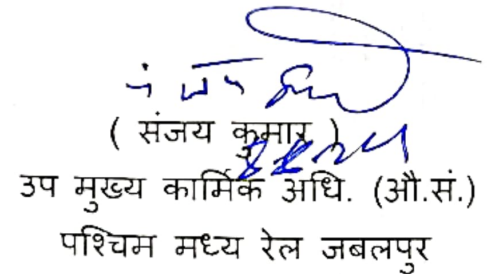 ( संजय कुमार )
उप मुख्य कार्मिक अधि. (औ.सं.)
पश्चिम मध्य रेल जबलपुर